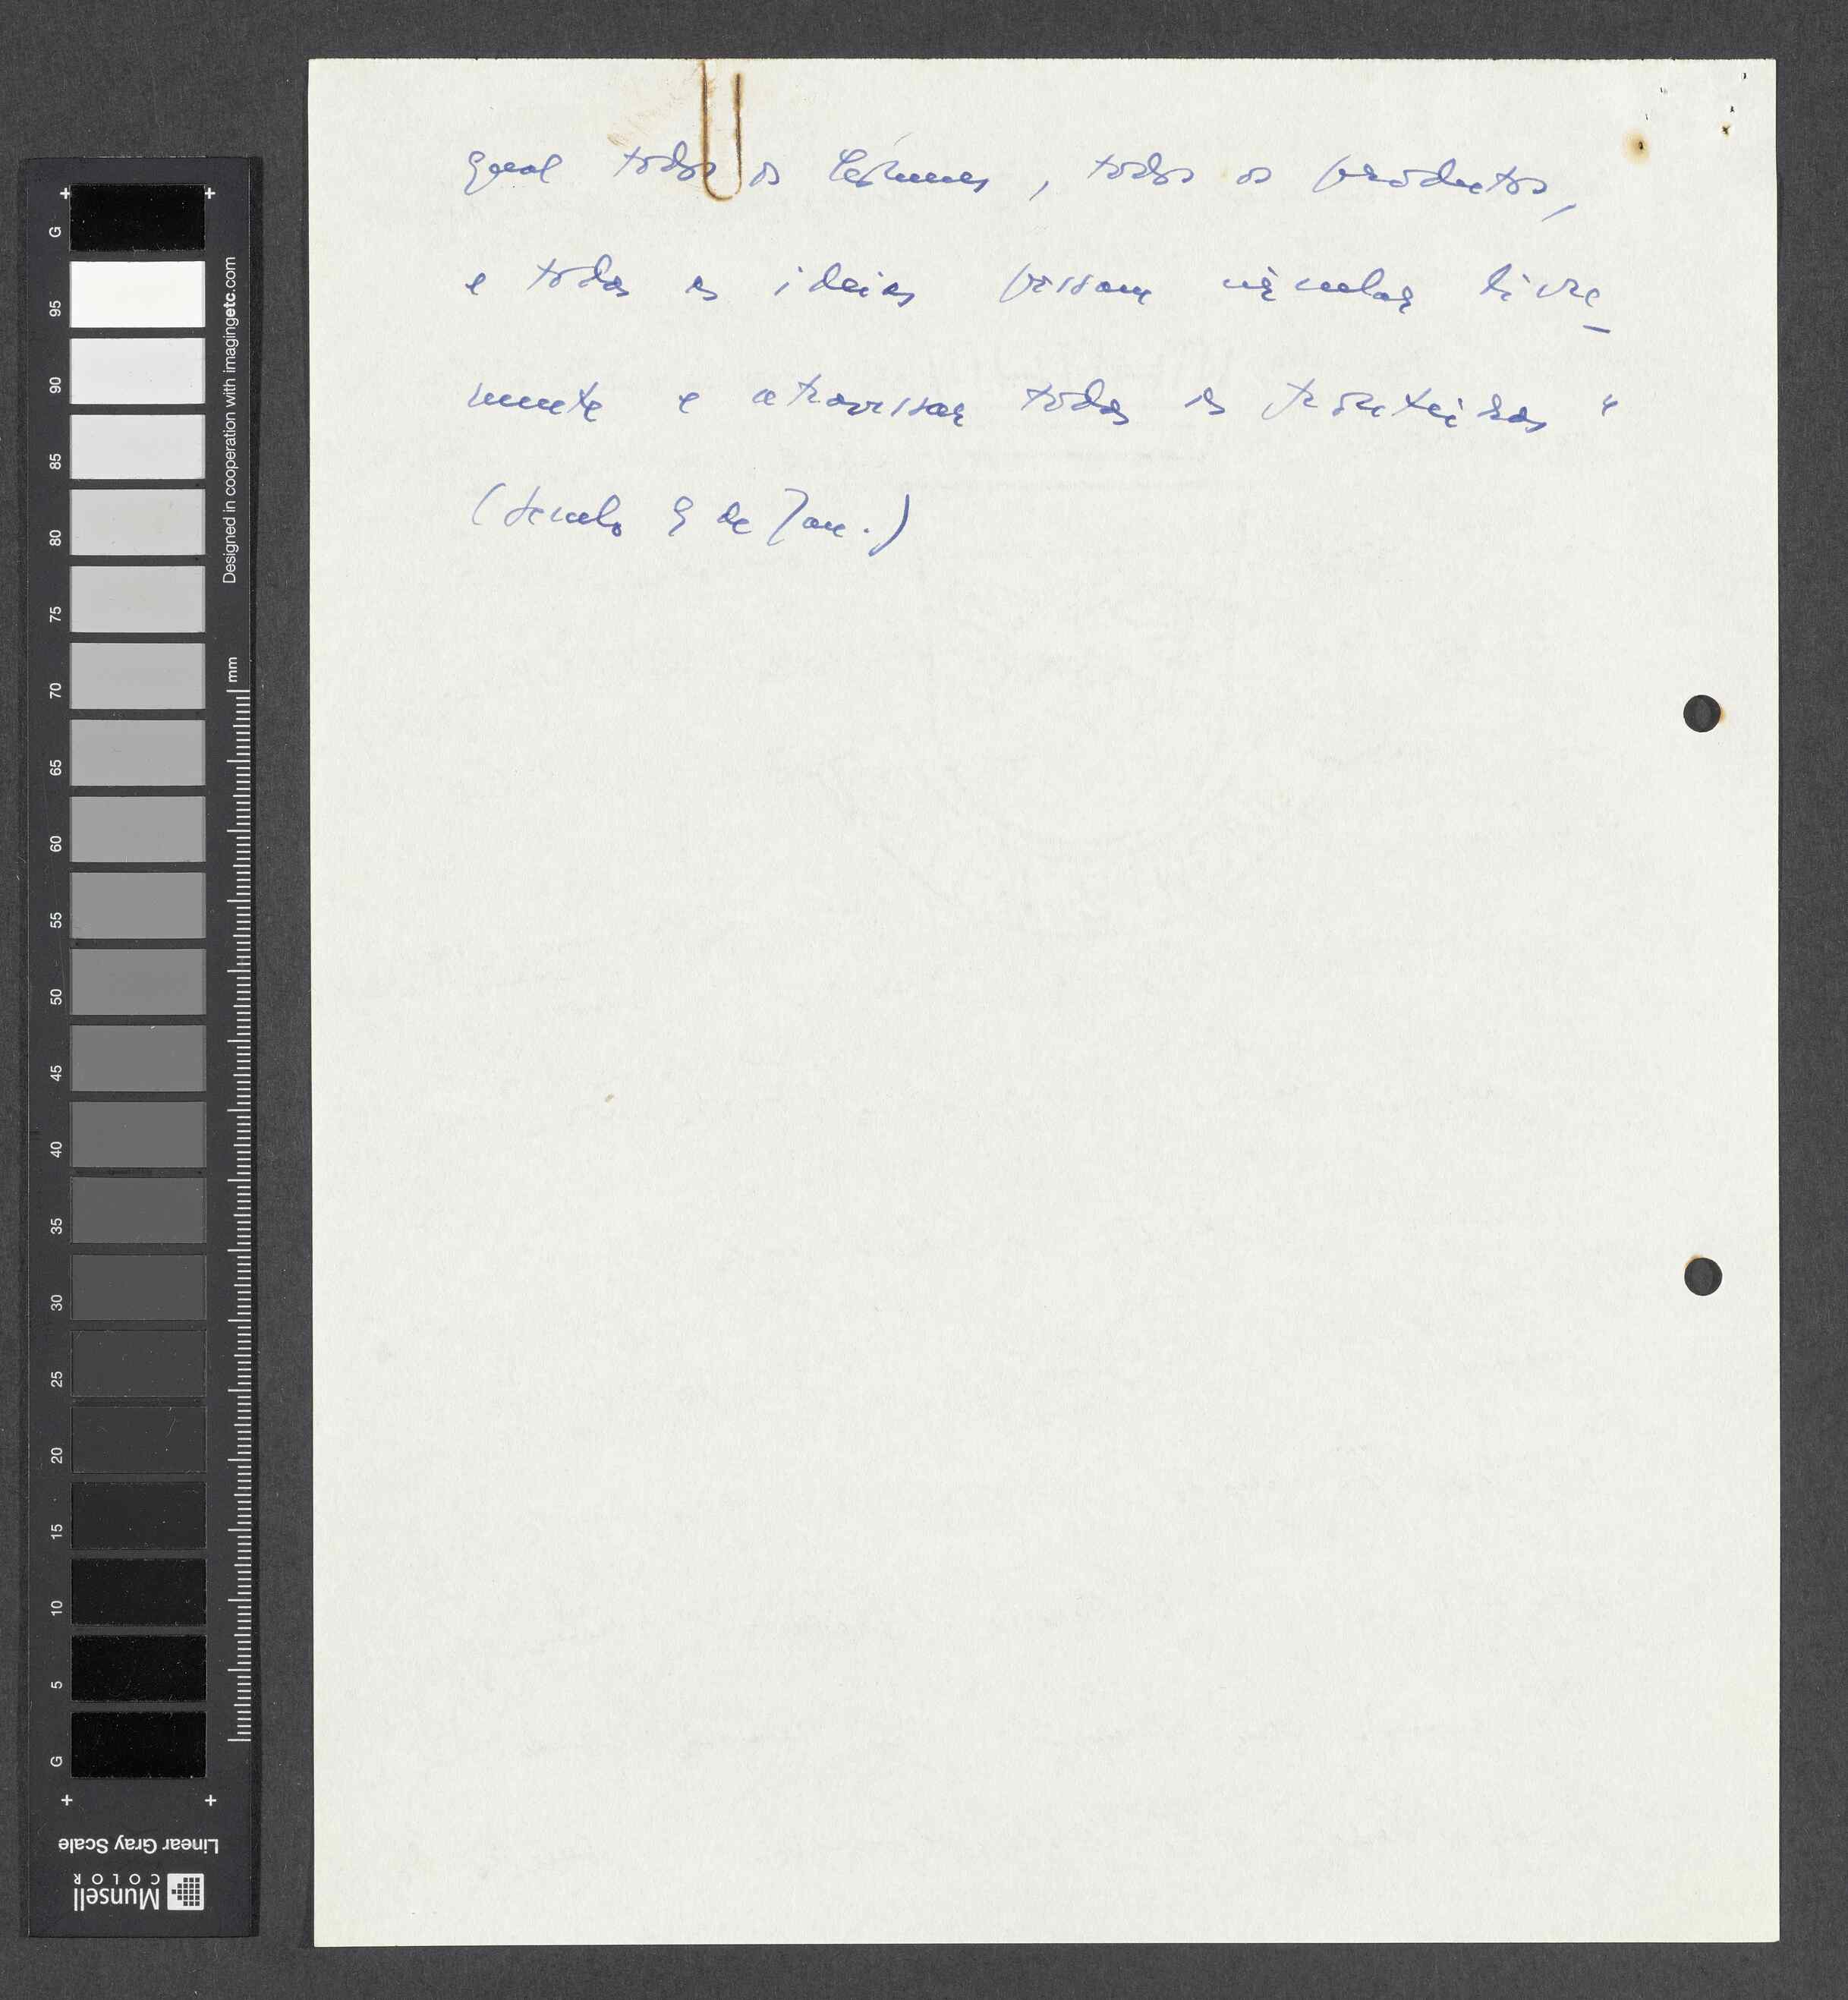 geral todos os homens, todos os productos,
e todas as ideias possam circular livre_
mente e atravessar todas as fronteiras "
(Seculo 9 de Jan.)
Designed in cooperation with imagingetc.com
mm
G
95
90
85
80
75
70
65
60
55
50
45
40
35
30
25
20
15
10
5
G
Linear Gray Scale
Munsell
COLOR